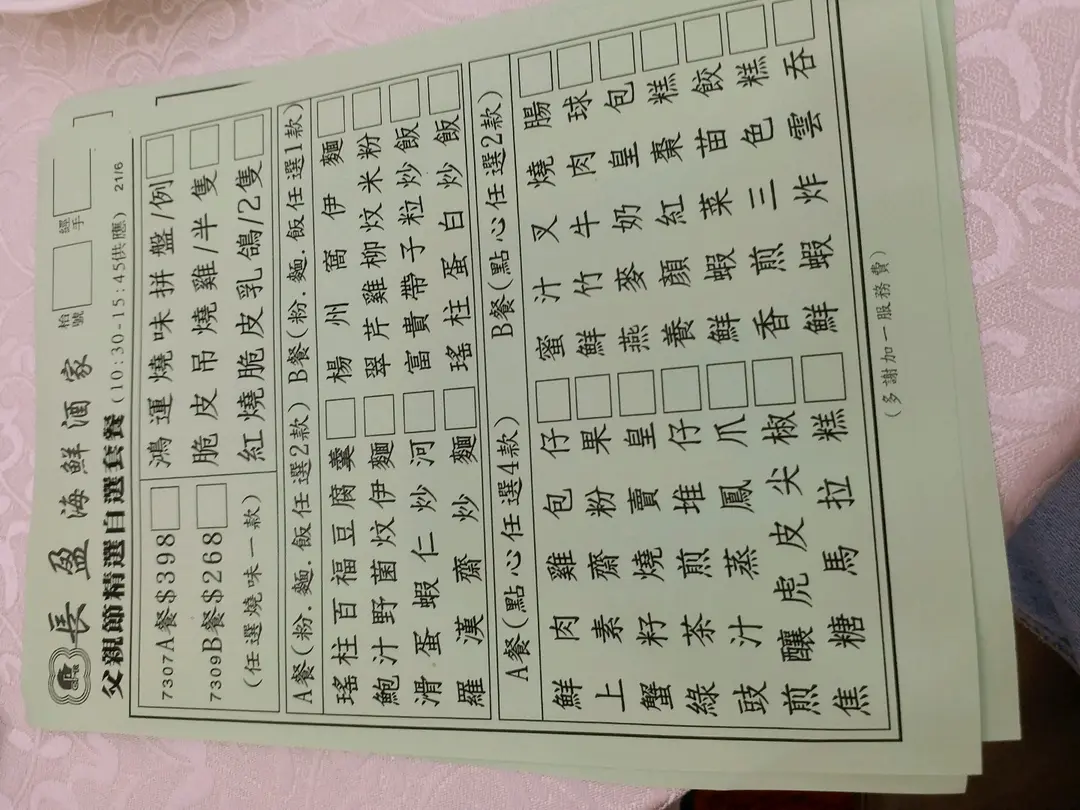 長盈海鮮酒家
枱號
經手
父親節精選自選套餐(10:30-15:45供應) 21/6
7307A餐$398
7309B餐$268
(任選燒味一款)
鴻運燒味拼盤/例
脆皮吊燒雞/半隻
紅燒脆皮乳鴿/2隻
A餐(粉.麵.飯任選2款)
瑤柱百福豆腐羹
鮑汁野菌炆伊麵
滑蛋蝦仁炒河
羅漢齋炒麵
B餐(粉.麵.飯任選1款)
楊州窩伊麵
翠芹雞柳炆米粉
富貴帶子粒炒飯
瑤柱蛋白炒飯
A餐(點心任選4款)
鮮肉雞包仔
上素齋粉果
蟹籽燒賣皇
綠茶煎堆仔
豉汁蒸鳳爪
煎釀虎皮尖椒
焦糖馬拉糕
B餐(點心任選2款)
蜜汁叉燒腸
鮮竹牛肉球
燕麥奶皇包
養顏紅棗糕
鮮蝦菜苗餃
香煎三色糕
鮮蝦炸雲吞
(多謝加一服務費)